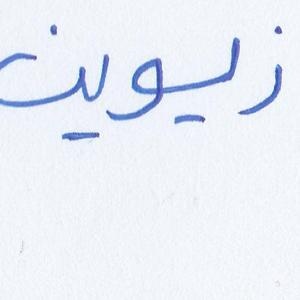 زيوين